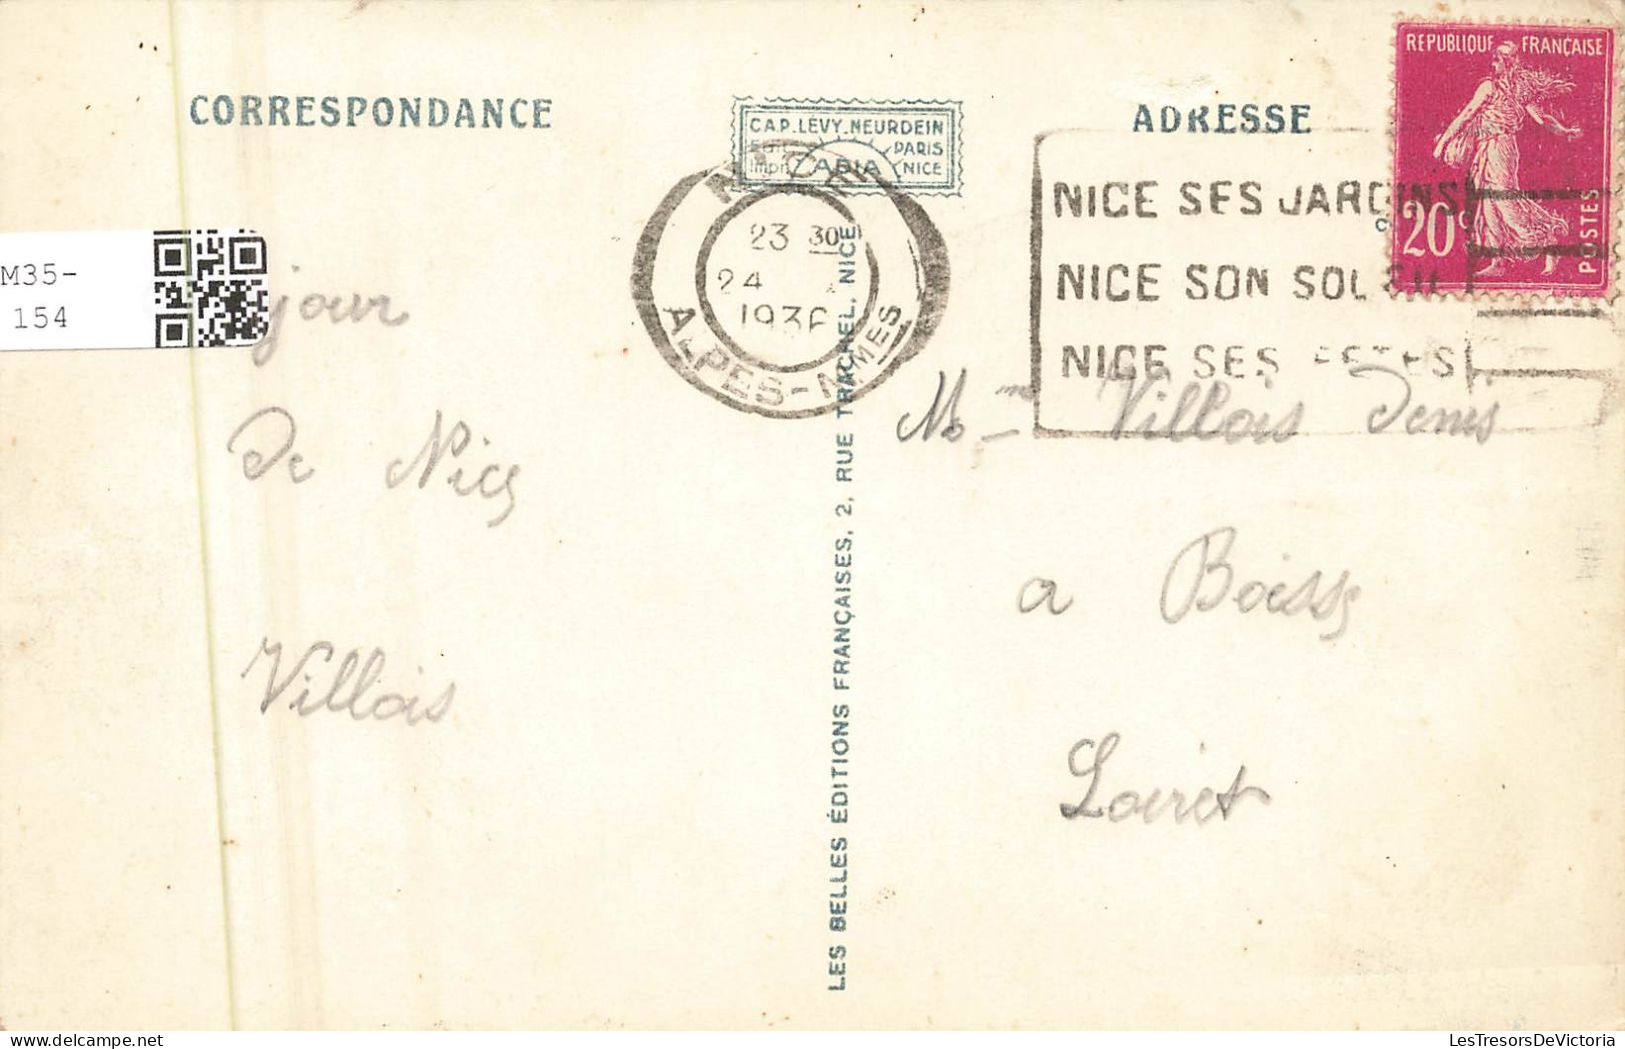 CORRESPONDANCE
CAP. LÉVY. NEURDEIN
Edit. PARIS
Impr. NICE
ADRESSE
REPUBLIQUE FRANÇAISE
20c
POSTES
NICE
23 30
24
1936
ALPES-MMES
NICE SES JARDINS
NICE SON SOLEIL
NICE SES FETES
M35-
154
jour
De Nice
Villois
Villois Denis
a Boisse
Loiret
LES BELLES ÉDITIONS FRANÇAISES, 2, RUE TRACHEL. NICE
LesTresorsDeVictoria